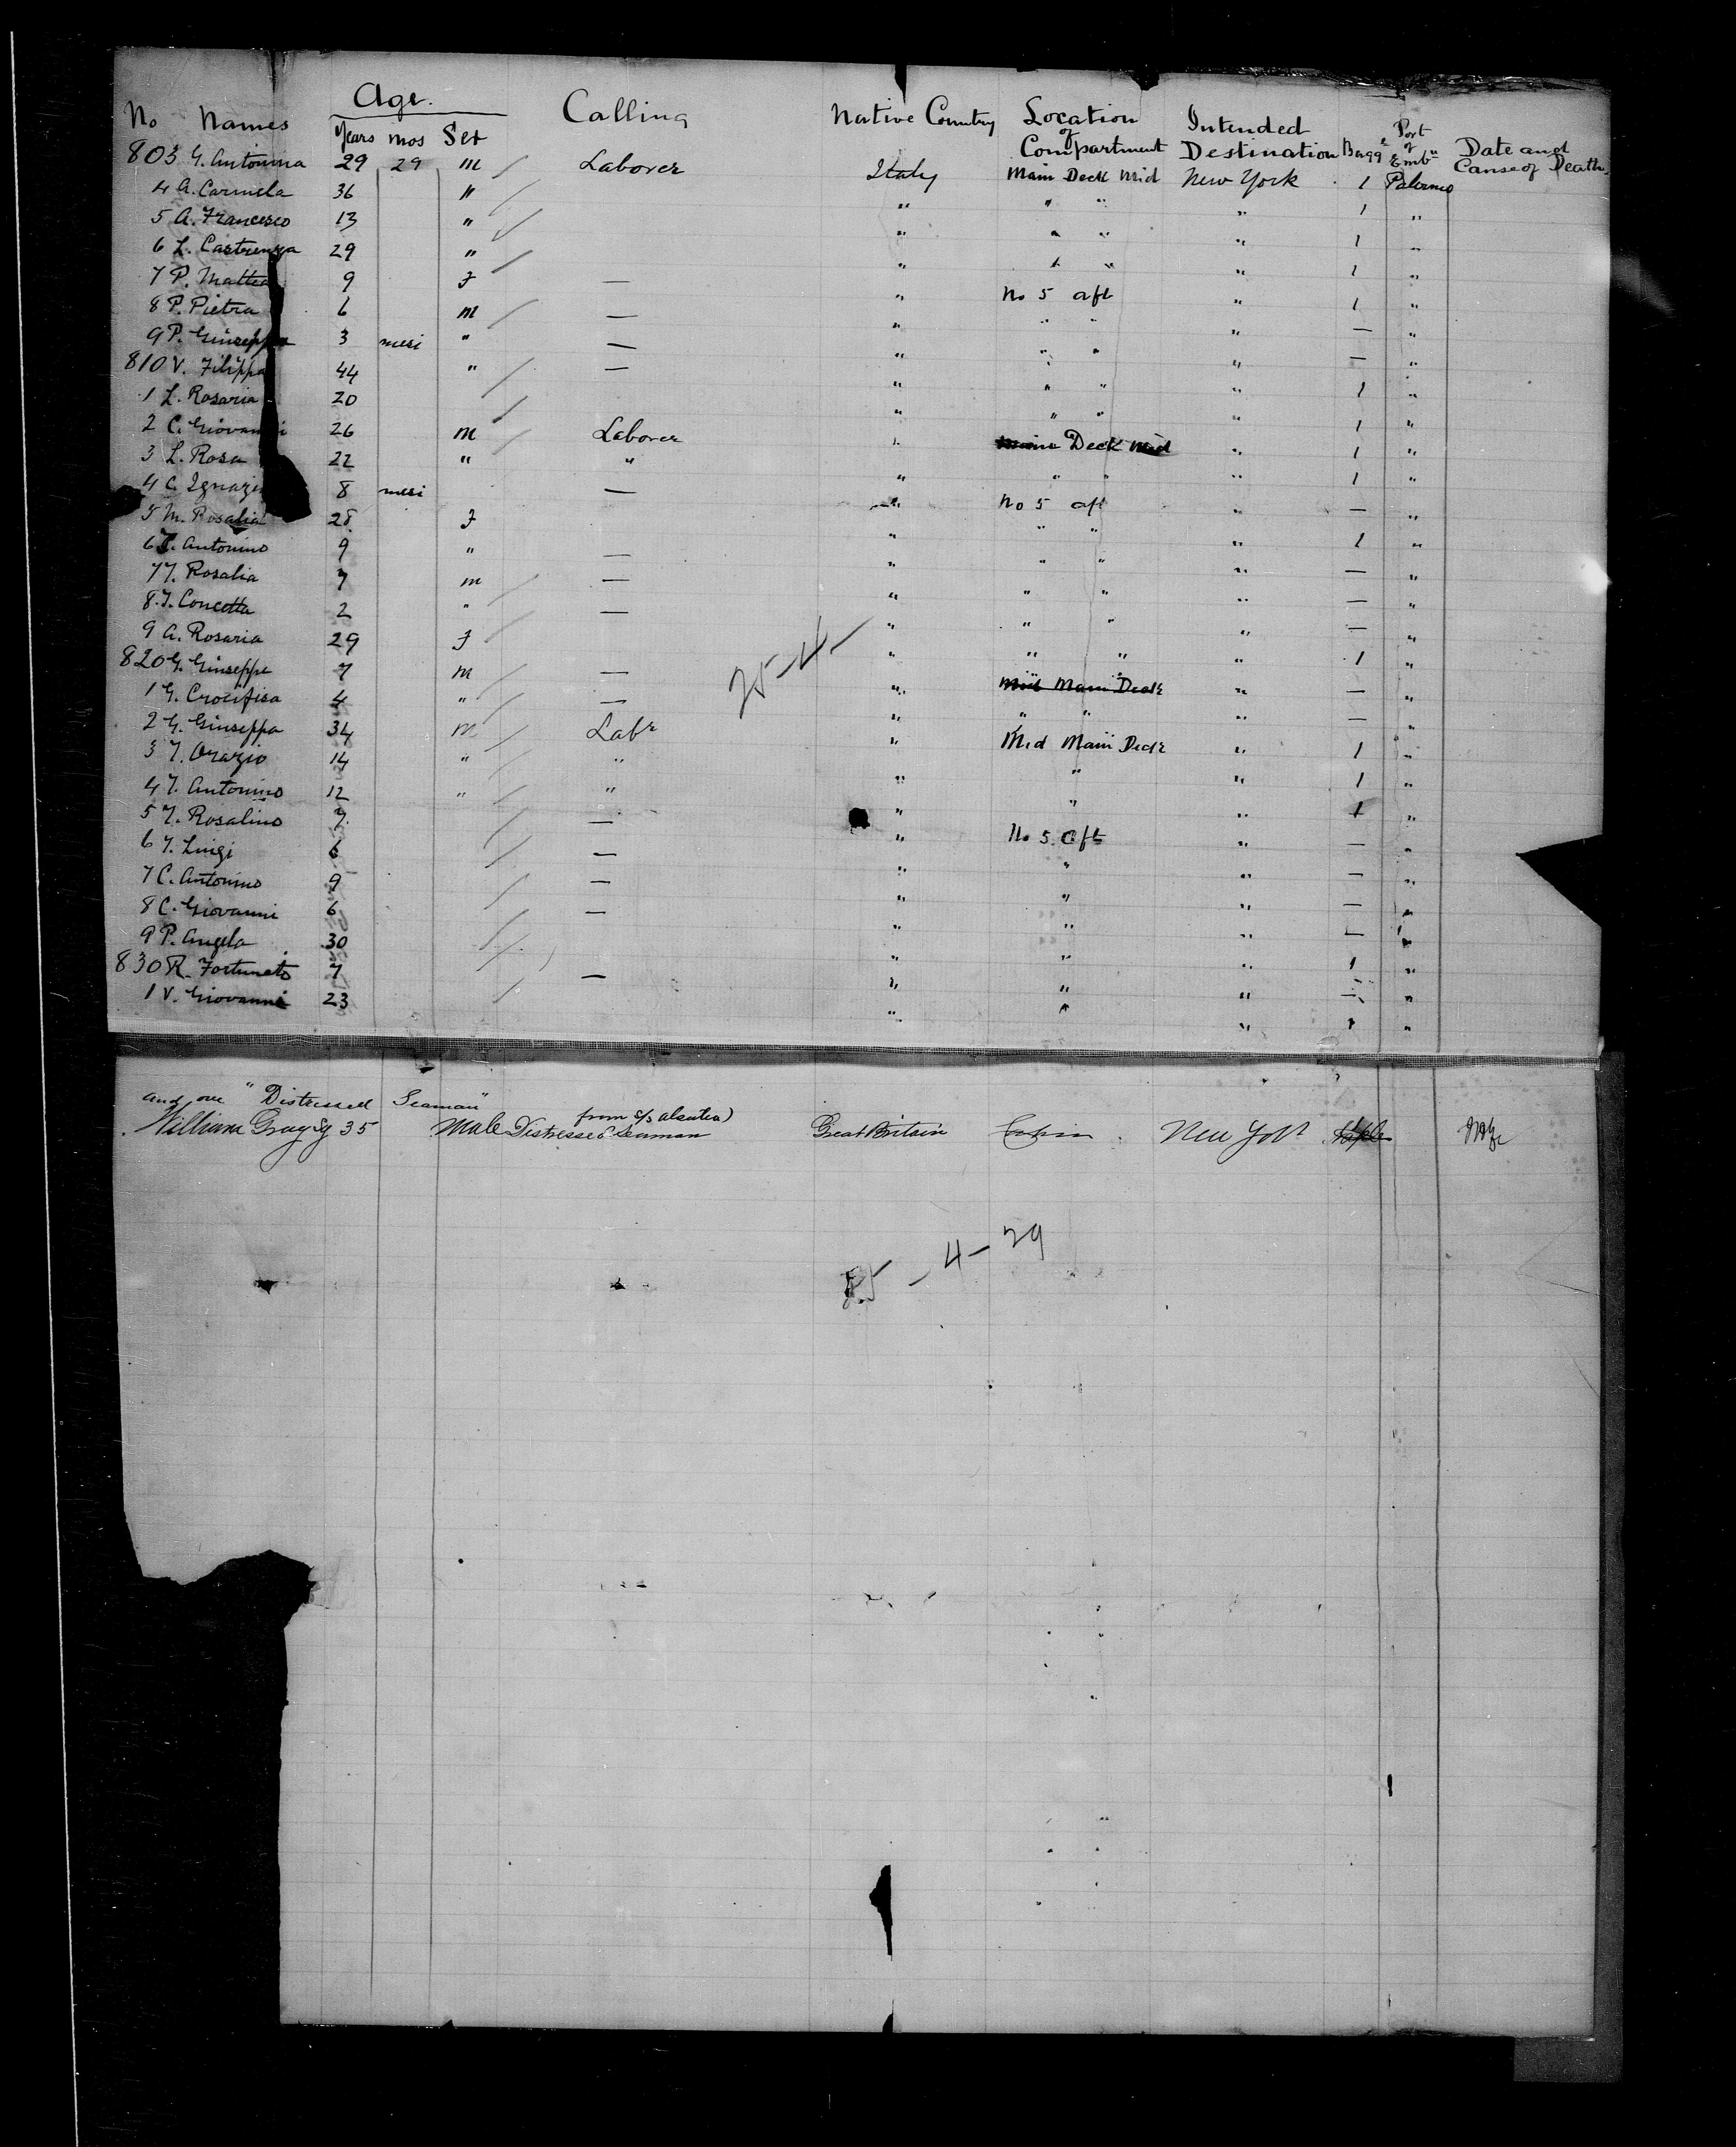 No Names Age. Years Mos Sex Calling Native Country Location of Compartment Intended Destination Bagge Port of Embn Date and Cause of Death
803 G. Antonina 29 29 m Laborer Italy Main Deck Mid New York 1 Palermo
4 A. Carmela 36 " " " " 1 "
5 A. Francesco 13 " " " " " 1 "
6 L. Castrenza 29 " " " " " 1 "
7 P. Mattea 9 F — " No 5 aft " 1 "
8 P. Pietra 6 m — " " " " — "
9 P. Giuseppa 3 mesi " — " " " " — "
810 V. Filippa 44 " — " " " " 1 "
1 L. Rosaria 20 " " " " 1 "
2 C. Giovanni 26 m Laborer " Main Deck Mid " 1 "
3 L. Rosa 22 " " " " " " 1 "
4 C. Ignazi 8 mesi — " No 5 aft " — "
5 M. Rosalia 28 F " " " " 1 "
6 T. Antonino 9 " — " " " " — "
7 T. Rosalia 7 m — " " " " — "
8 T. Concetta 2 " — " " " " — "
9 A. Rosaria 29 F " " " " 1 "
820 G. Giuseppe 7 m — " Mid Main Deck " — "
1 G. Crocifisa 4 " — " " " " — "
2 G. Giuseppa 34 m Labr " Mid Main Deck " 1 "
3 T. Orazio 14 " " " " " 1 "
4 T. Antonino 12 " " " " " 1 "
5 T. Rosalino 7 — " No 5 aft " — "
6 T. Luigi 6 — " " " — "
7 C. Antonino 9 — " " " — "
8 C. Giovanni 6 — " " " — "
9 P. Angela 30 " " " 1 "
830 R. Fortunato 7 — " " " — "
1 V. Giovanni 23 " " " 1 "
25-4-
and one "Distressed Seaman"
William Gray 35 Male Distressed Seaman from S/S Alsatia) Great Britain Cabin New York Naples
25-4-29